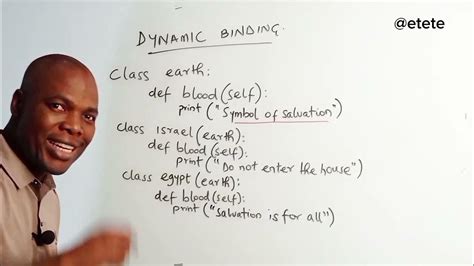 @etete
DYNAMIC BINDING.
Class earth:
def blood(self):
print("Symbol of salvation")
class Israel(earth):
def blood(self):
print("Do not enter the house")
class egypt(earth):
def blood(self):
print("Salvation is for all")